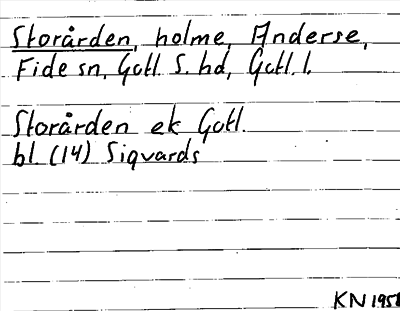 Storården, holme, Anderse,
Fide sn, Gotl. S. hd, Gotl. l.
Storården ek Gotl.
bl (14) Sigvards
KN 1958